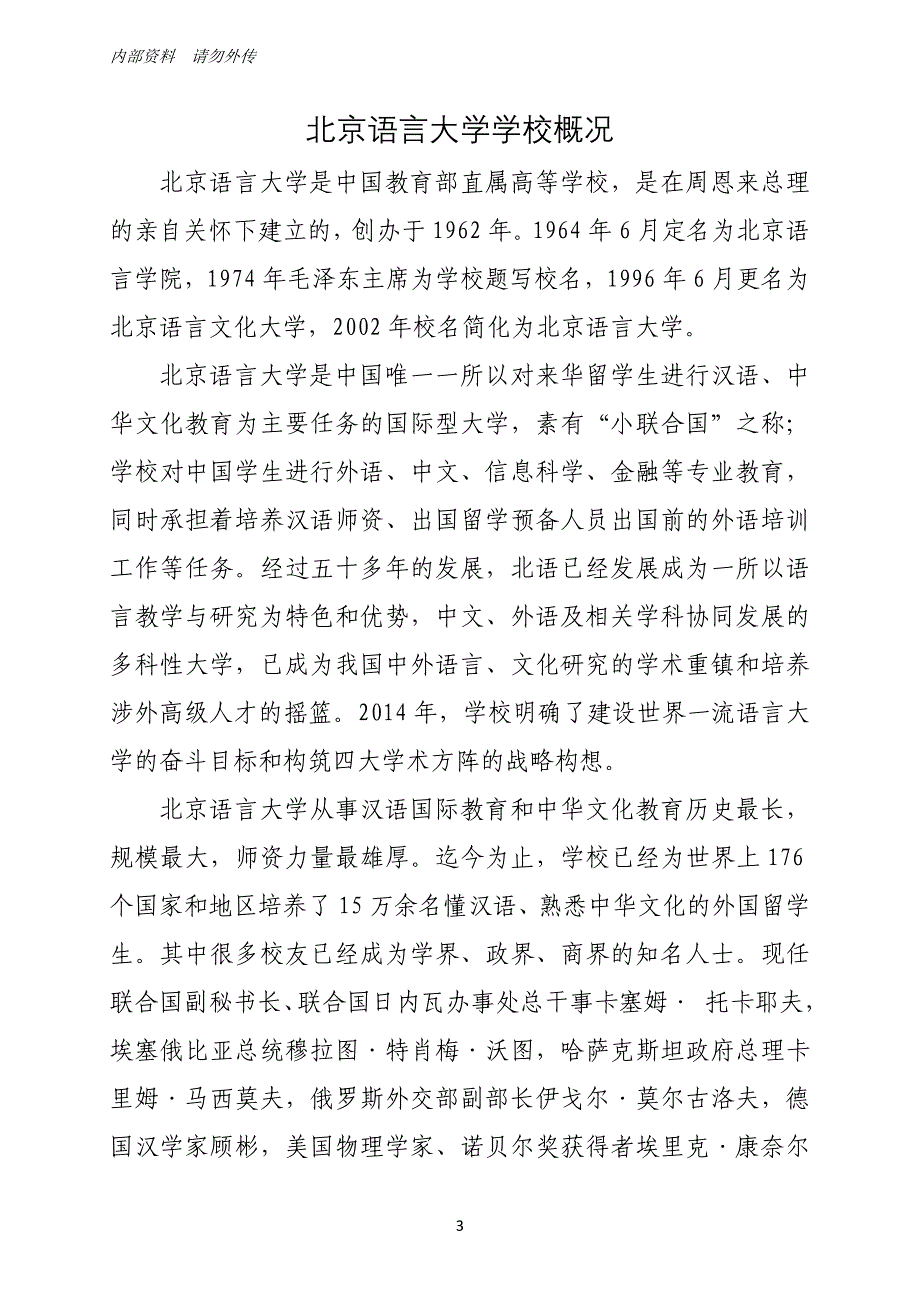 内部资料　请勿外传
北京语言大学学校概况
北京语言大学是中国教育部直属高等学校，是在周恩来总理
的亲自关怀下建立的，创办于 1962 年。1964 年 6 月定名为北京语
言学院，1974 年毛泽东主席为学校题写校名，1996 年 6 月更名为
北京语言文化大学，2002 年校名简化为北京语言大学。
北京语言大学是中国唯一一所以对来华留学生进行汉语、中
华文化教育为主要任务的国际型大学，素有“小联合国”之称；
学校对中国学生进行外语、中文、信息科学、金融等专业教育，
同时承担着培养汉语师资、出国留学预备人员出国前的外语培训
工作等任务。经过五十多年的发展，北语已经发展成为一所以语
言教学与研究为特色和优势，中文、外语及相关学科协同发展的
多科性大学，已成为我国中外语言、文化研究的学术重镇和培养
涉外高级人才的摇篮。2014 年，学校明确了建设世界一流语言大
学的奋斗目标和构筑四大学术方阵的战略构想。
北京语言大学从事汉语国际教育和中华文化教育历史最长，
规模最大，师资力量最雄厚。迄今为止，学校已经为世界上 176
个国家和地区培养了 15 万余名懂汉语、熟悉中华文化的外国留学
生。其中很多校友已经成为学界、政界、商界的知名人士。现任
联合国副秘书长、联合国日内瓦办事处总干事卡塞姆· 托卡耶夫，
埃塞俄比亚总统穆拉图·特肖梅·沃图，哈萨克斯坦政府总理卡
里姆·马西莫夫，俄罗斯外交部副部长伊戈尔·莫尔古洛夫，德
国汉学家顾彬，美国物理学家、诺贝尔奖获得者埃里克·康奈尔
3